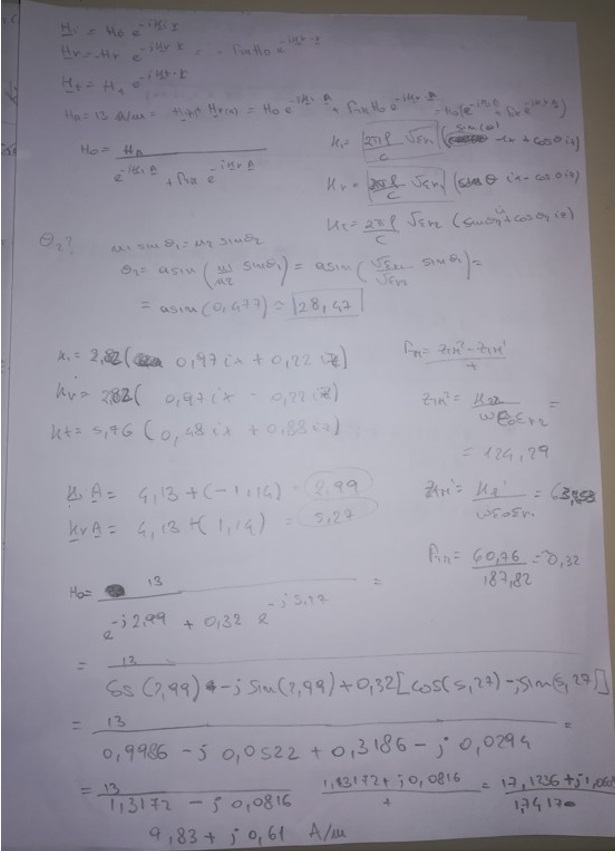 H_i = H_0 e^{-j k_i · r}
H_r = H_r e^{-j k_r · r} = - Γ_TM H_0 e^{-j k_r · r}
H_t = H_t e^{-j k_t · r}
H_A = 13 A/m = H_i(A) + H_r(A) = H_0 e^{-j k_i · A} + Γ_TM H_0 e^{-j k_r · A} = H_0 (e^{-j k_i A} + Γ_TM e^{-j k_r A})
H_0 = H_A / (e^{-j k_i A} + Γ_TM e^{-j k_r A})
k_i = 2πf/c √εr1 (sin(θ) ix + cosθ iz)
k_r = 2πf/c √εr1 (sin θ ix - cosθ iz)
k_t = 2πf/c √εr2 (sinθ2 ix + cosθ2 iz)
θ2? n1 sinθ1 = n2 sinθ2
θ2 = asin (n1/n2 sinθ1) = asin (√εr1/√εr2 sinθ1) =
= asin (0,477) = 28,47
k_i = 2,82 ( 0,97 ix + 0,22 iz)
k_r = 2,82 ( 0,97 ix - 0,22 iz)
k_t = 5,76 ( 0,48 ix + 0,88 iz)
Z_TM² = / ωε0εr2 =
= 124,29
k_i A = 4,13 + (-1,14) = 2,99
k_r A = 4,13 + (1,14) = 5,27
Γ_TM = 60,76 / 187,82 = 0,32
H_0 = 13 / (e^{-j 2,99} + 0,32 e^{-j 5,27}) =
= 13 / (cos (2,99) - j sin (2,99) + 0,32 [cos(5,27) - j sin(5,27)])
= 13 / (0,9986 - j 0,0522 + 0,3186 - j 0,0294) =
= 13 / (1,3172 - j 0,0816) (1,3172 + j 0,0816) / + = 17,1236 + j 1, / 1,7417
9,83 + j 0,61 A/m